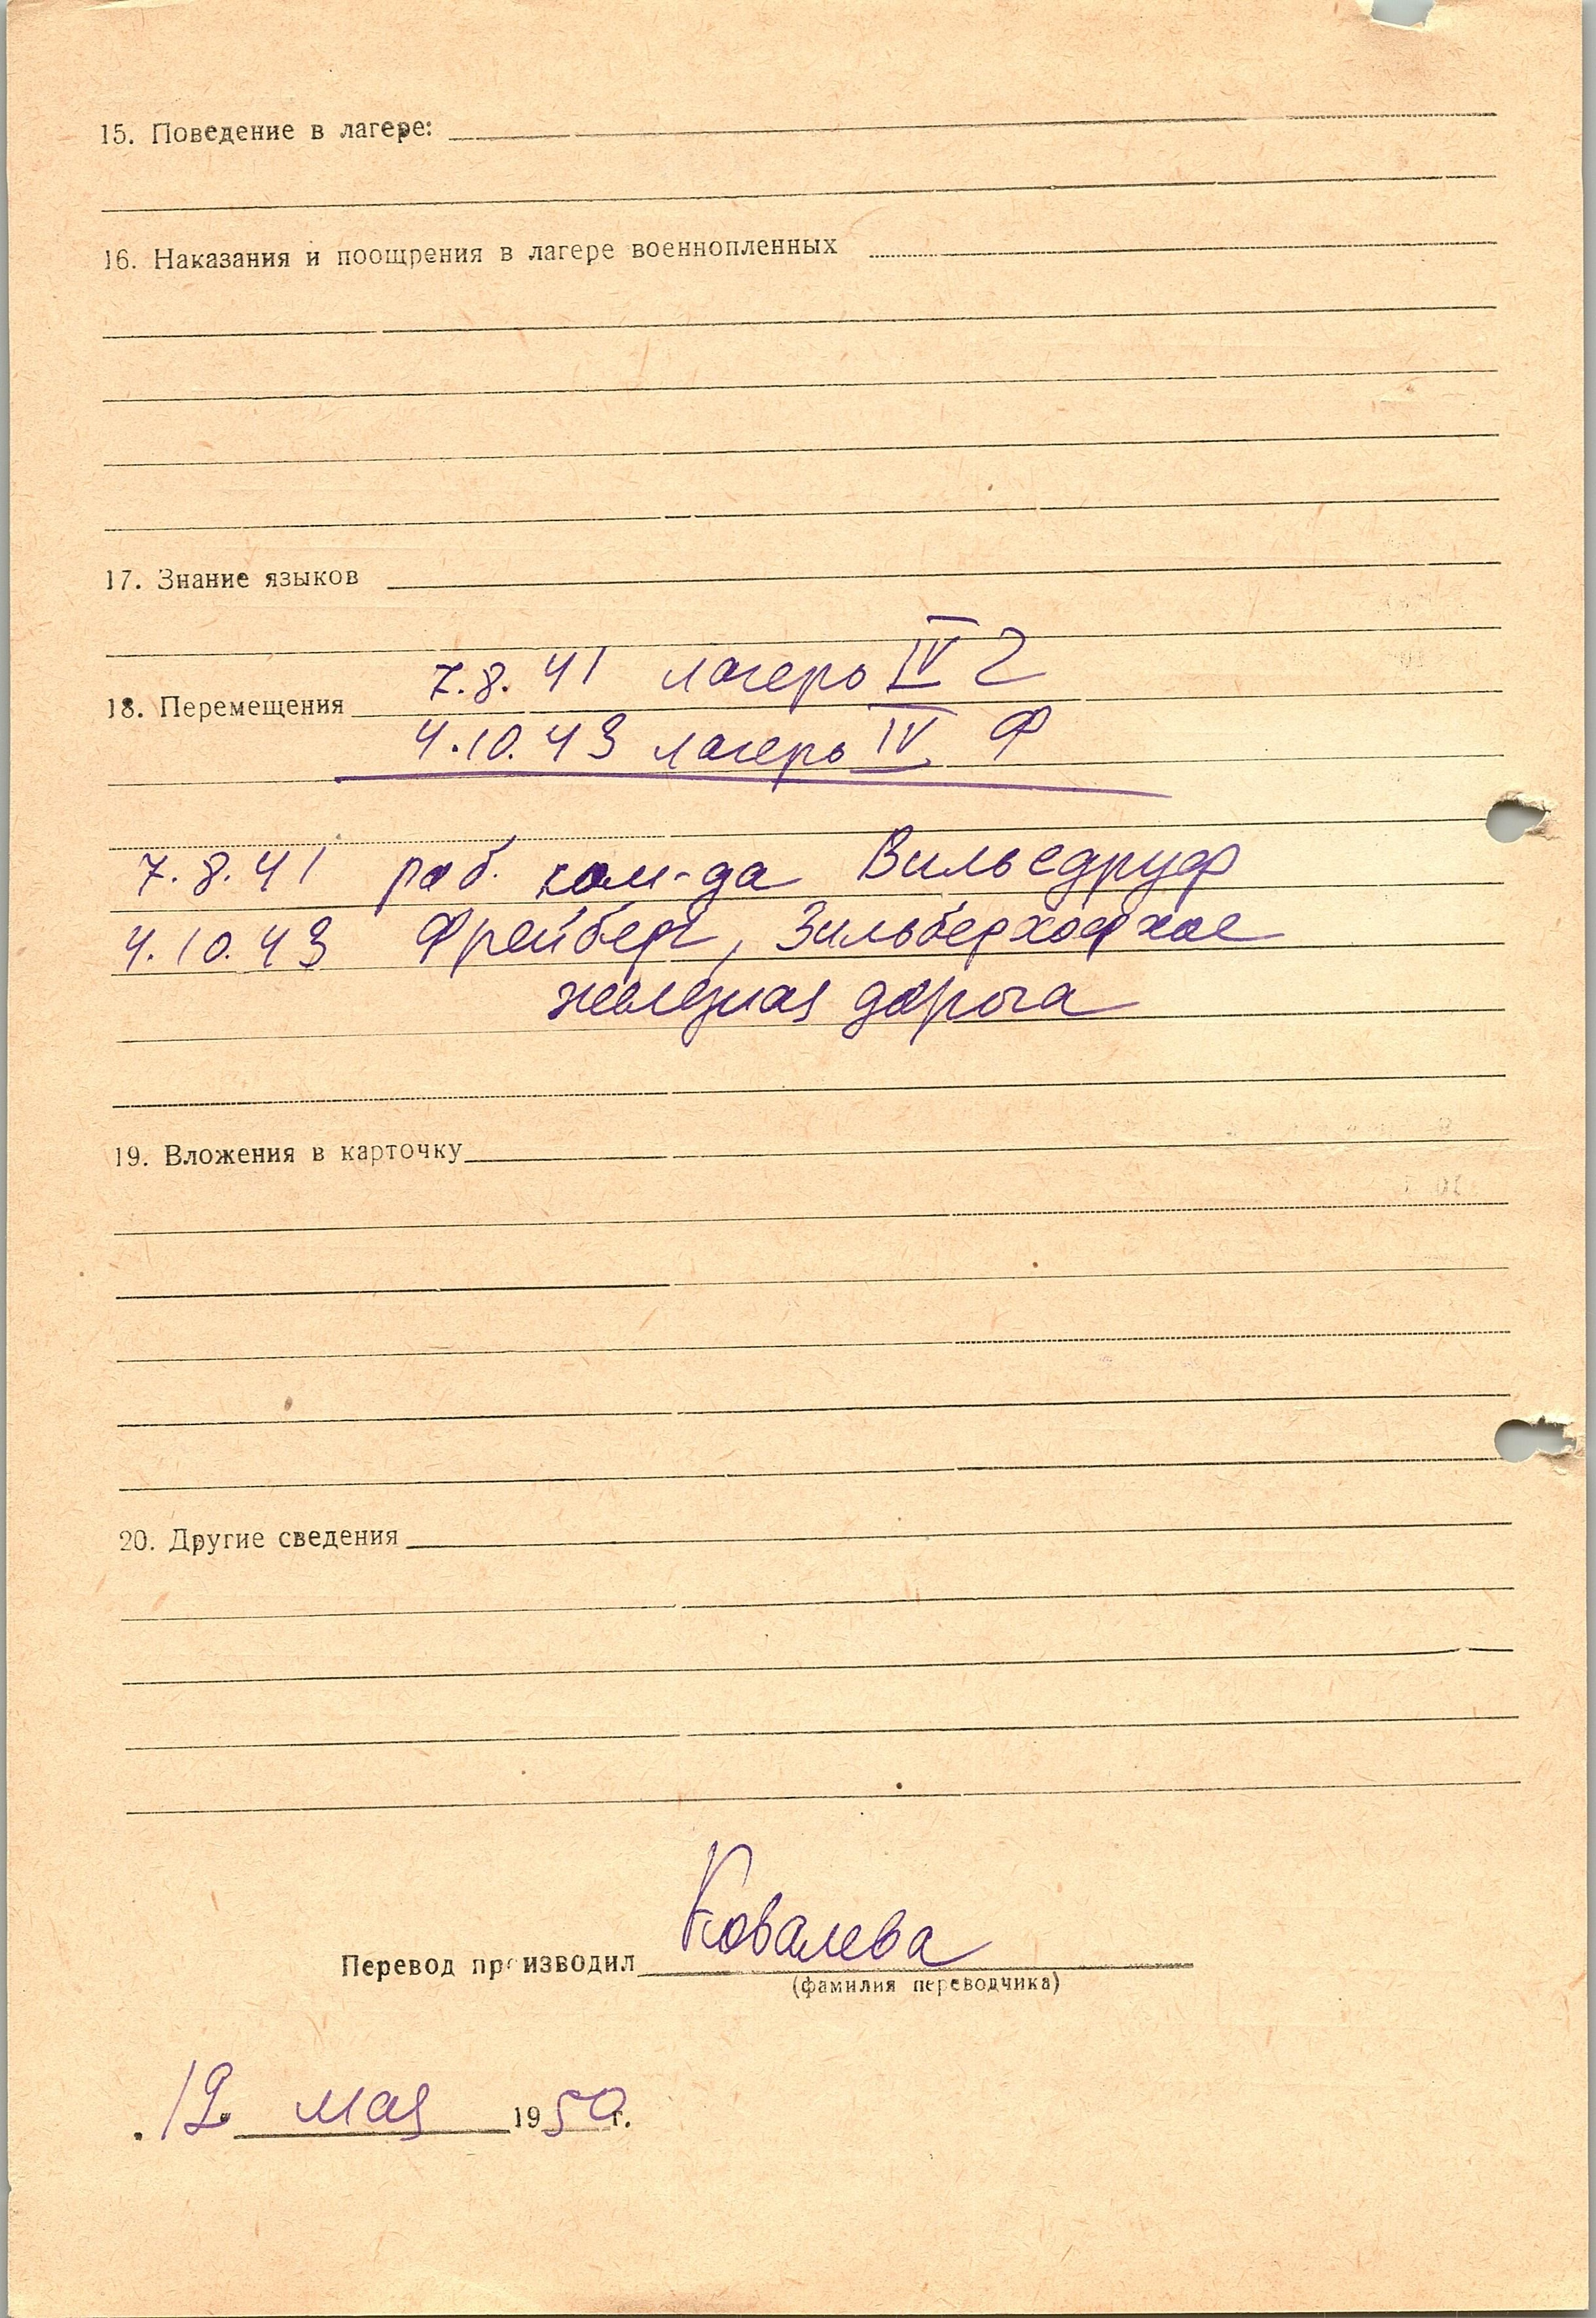 15. Поведение в лагере:
16. Наказания и поощрения в лагере военнопленных
17. Знание языков
7.8.41 лагерь IV Г
18. Перемещения
4.10.43 лагерь IV Ф
7.8.41 раб. ком-да Вильсдруф
4.10.43 Фрейберг, Зильберхофхое
железная дорога
19. Вложения в карточку
20. Другие сведения
Ковалева
Перевод производил
(фамилия переводчика)
12 мая 1950 г.